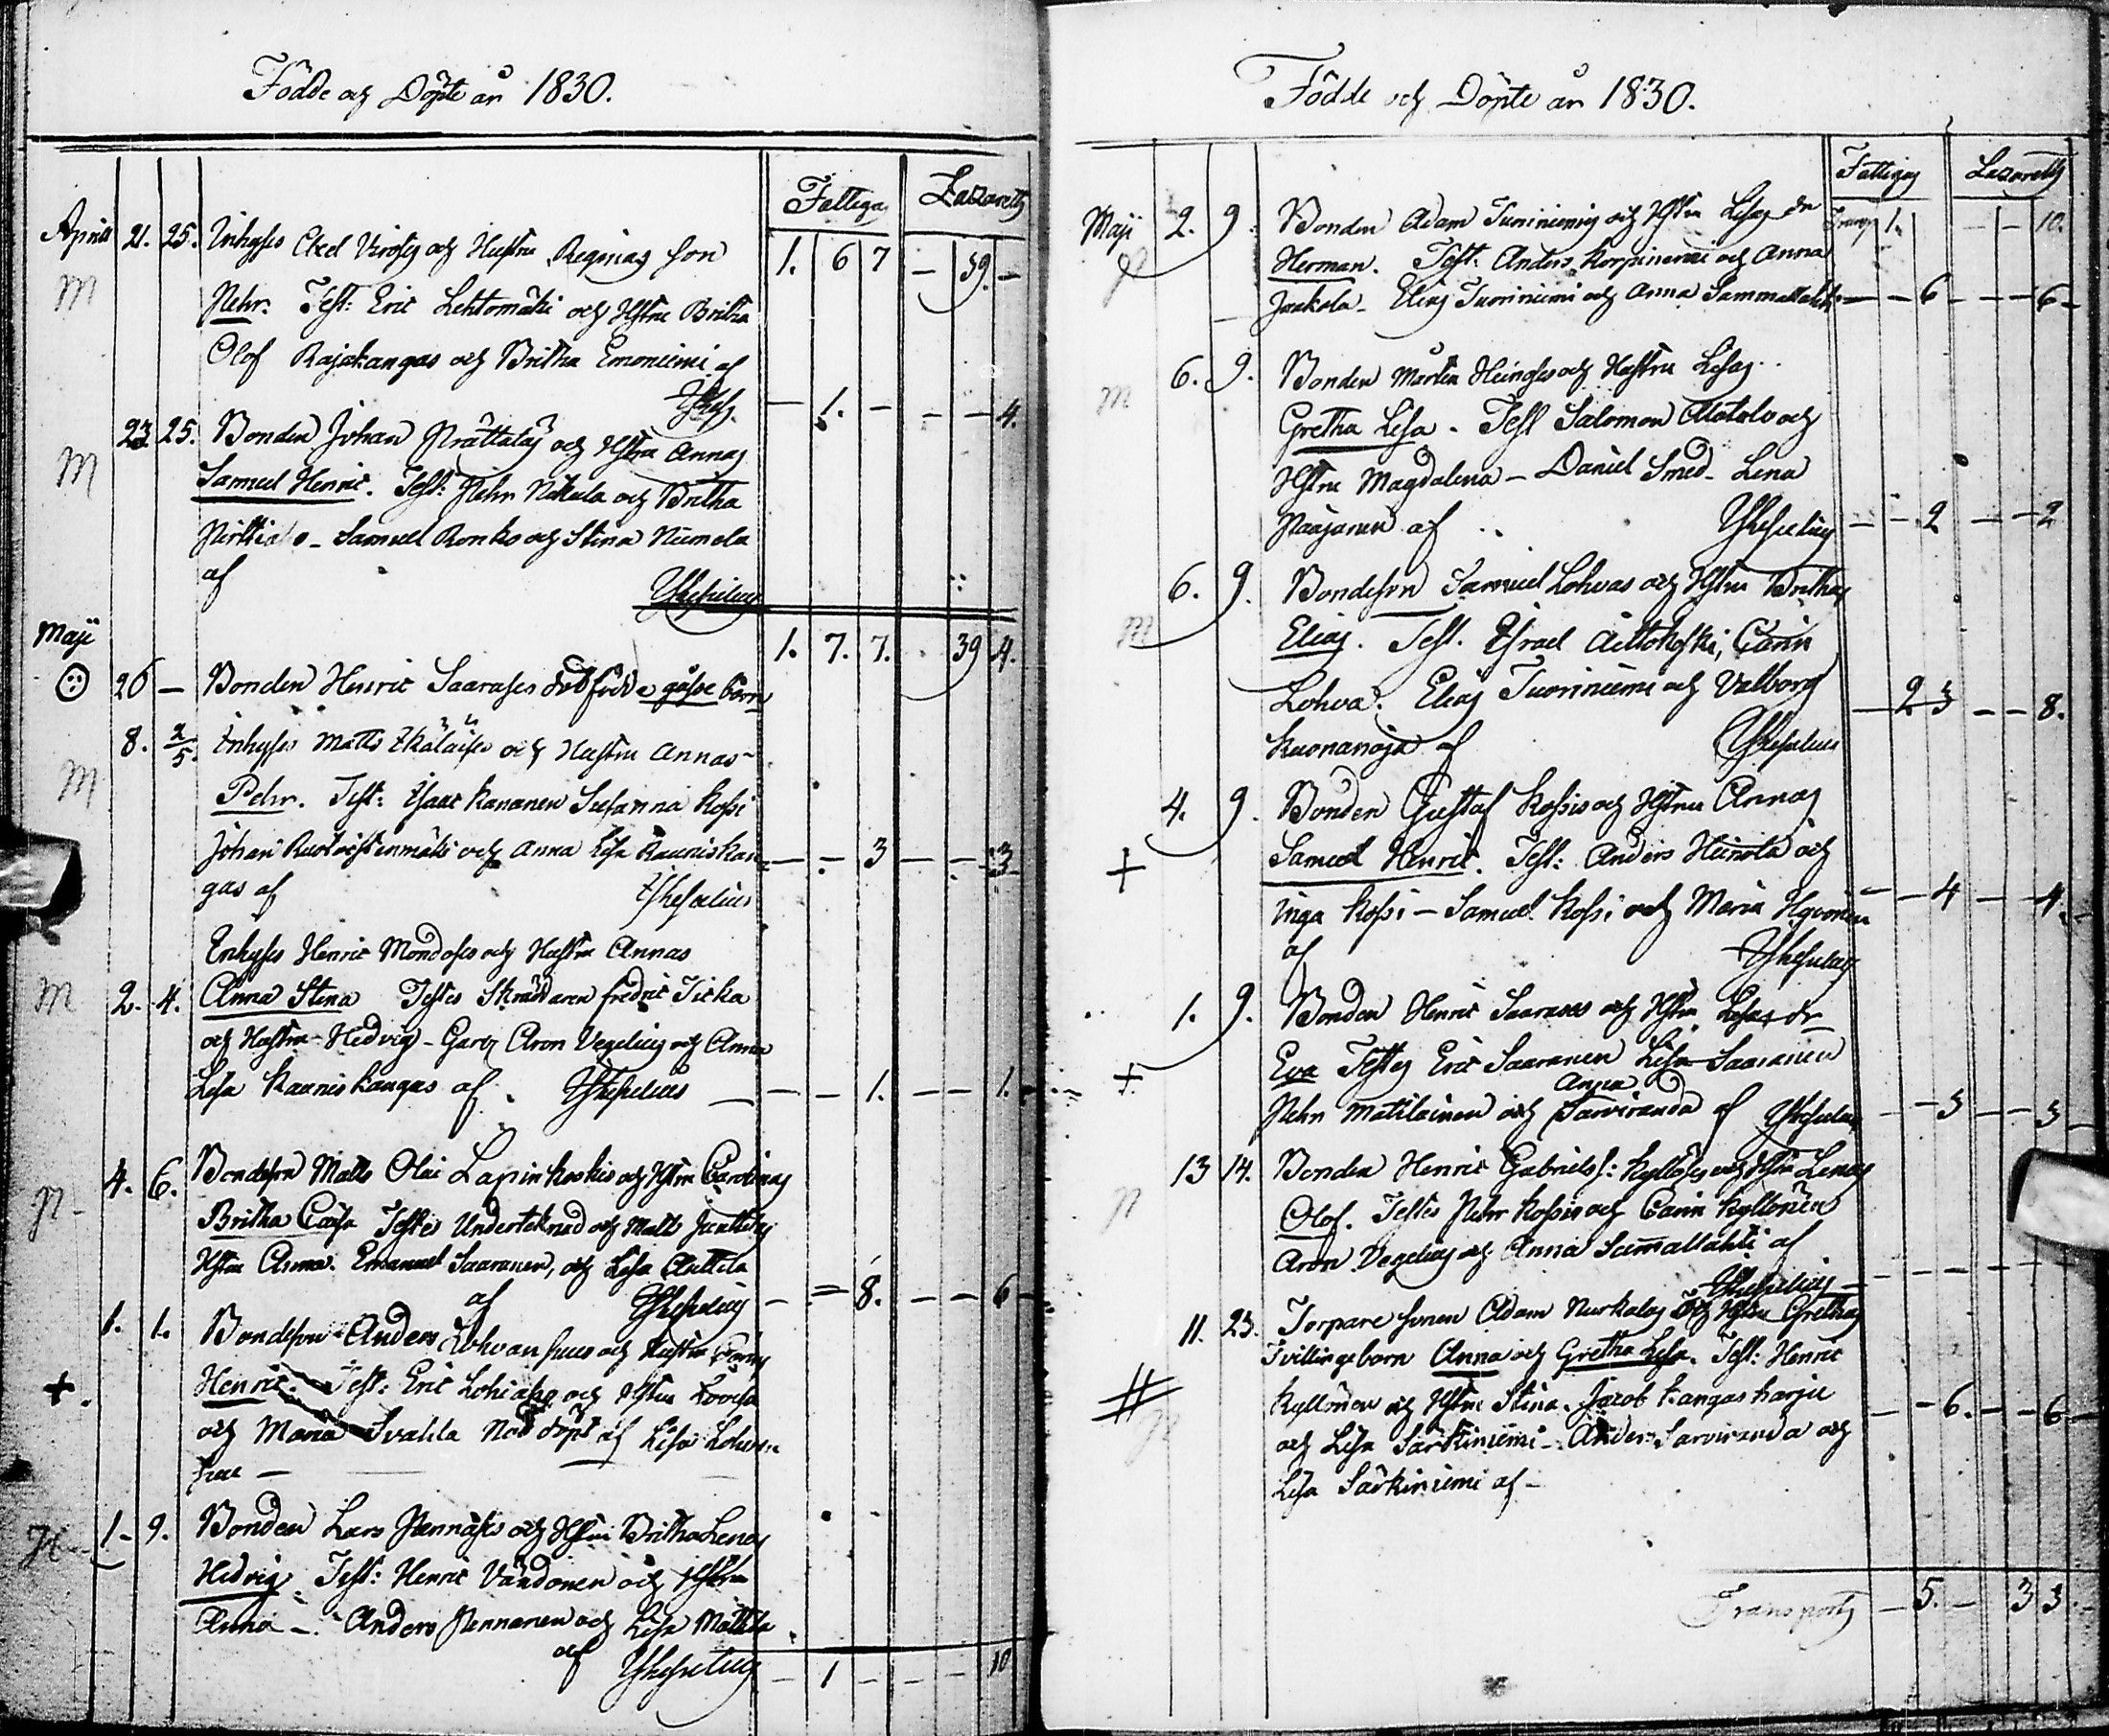 Födde och Döpte år 1830.
Fattiga Lazaretts
April 21. 25. Inhyses Axel Virosis och Hustru Reginas son 1. 6 7 - 39. -
M Pehr. Test: Eric Lehtomäki och Hstru Britha
Olof Rajakangas och Britha Emoniemi af
- 1. - - - 4.
23 25. Bonden Johan Prättaläs och Hstru Annas
M Samuel Henric. Test: Pehr Nikula och Britha
Samuel Ronko och Stina Niemela
af Ykspelius
Maji 1. 7. 7. 39 4.
26 - Bonden Henric Saarases död född e gosse barn
8. 2/5. Inhyses Matts och Hustru Annas
M Pehr. Test: Isaac Kananen Susanna Kossi
Johan och Anna Lisa Kauniskan- - - 3 - - 3
gas af Ykspelius
Inhyses Henric Mondoses och Hustru Annas
M 2. 4. Anna Stina Testes Skräddaren Fredric Ticka
och Hustru Hedvig - Garfv Aron Vegelius och Anna
Lisa Kauniskangas af Ykspelius - - - 1. - - 1.
4. 6. Bondeson Matts Olai Lapinkoskis och Hstru Carolinas
Britha Caisa Testes Underteknad och Matts Junttilas
Hstru Anna. Emanuel Saaranen, och Lisa Anttila
af Ykspelius - = 8. - - 6
1. 1. Bondeson Anders Lohvansuus och Hustru
+ Henric. Test: Eric och Hstru Lovisa
och Maria Svahla Nöd döpt af Lisa Lohvan-
suu -
1 - 9. Bonden Lars Pennäses och Hstru Britha Lenas
Hedvig. Test: Henric Vändonen och Hstru
Anna - Anders Pennanen och Lisa Mattila
af Ykspelius - 1 - - - 10
Födde och Döpte år 1830.
Fattigas Lazaretts
Maji 2. 9. Bonden Adam Tuoriniemis och Hstru Lisas Transp 1. - - 10.
Herman. Test: Anders Korpiniemi och Anna
Jaakola - Elias Tuoriniemi och Anna Sammallahti - - 6 - - 6 -
6. 9. Bonden Mårten Heinoses och Hustru Lisas
M Gretha Lisa. Test Salomon och
Hstru Magdalena - Daniel Smed - Lena
Paajanen af Ykspelius - - 2 - - 2
6. 9. Bondeson Samuel Lohvas och Hstru Brithas
M Elias. Test. Israel Aittokoski, Carin
Lohva. Elias Tuoriniemi och Valborg
Kuonanoja af Ykspelius - - 8.
4. 9. Bonden Gustaf Kossis och Hstru Annas
+ Samuel Henric. Test: Anders Heinola och
Inga Kossi - Samuel Kossi och Maria Hyvönen - - 4 - - 4. -
af Ykspelius
1. 9. Bonden Henric Saarases och Hstru Lisas dr
+ Eva Testes Eric Saaranen Lisa Saaranen
Pehr Matilainen och Anna Sarviranda af Ykspelius - - 3 - - 3 -
13 14. Bonden Henric Gabriels s: Kyllöses och Hstru Lenas
Olof. Testes Pehr Kossis och Carin Kyllönen
Aron Vegelius och Anna Sammallahti af
Ykspelius - - - - - -
11. 23. Torpare sonen Adam Nurkalas och Hstru Grethas
Tvillingebarn Anna och Gretha Lisa. Test: Henric
Kyllönen och Hstru Stina. Jacob Kangasharju - - 6. - - 6 -
och Lisa Särkiniemi - Anders Sarviranda och
Lisa Särkiniemi af -
Transport - 5. - 33.